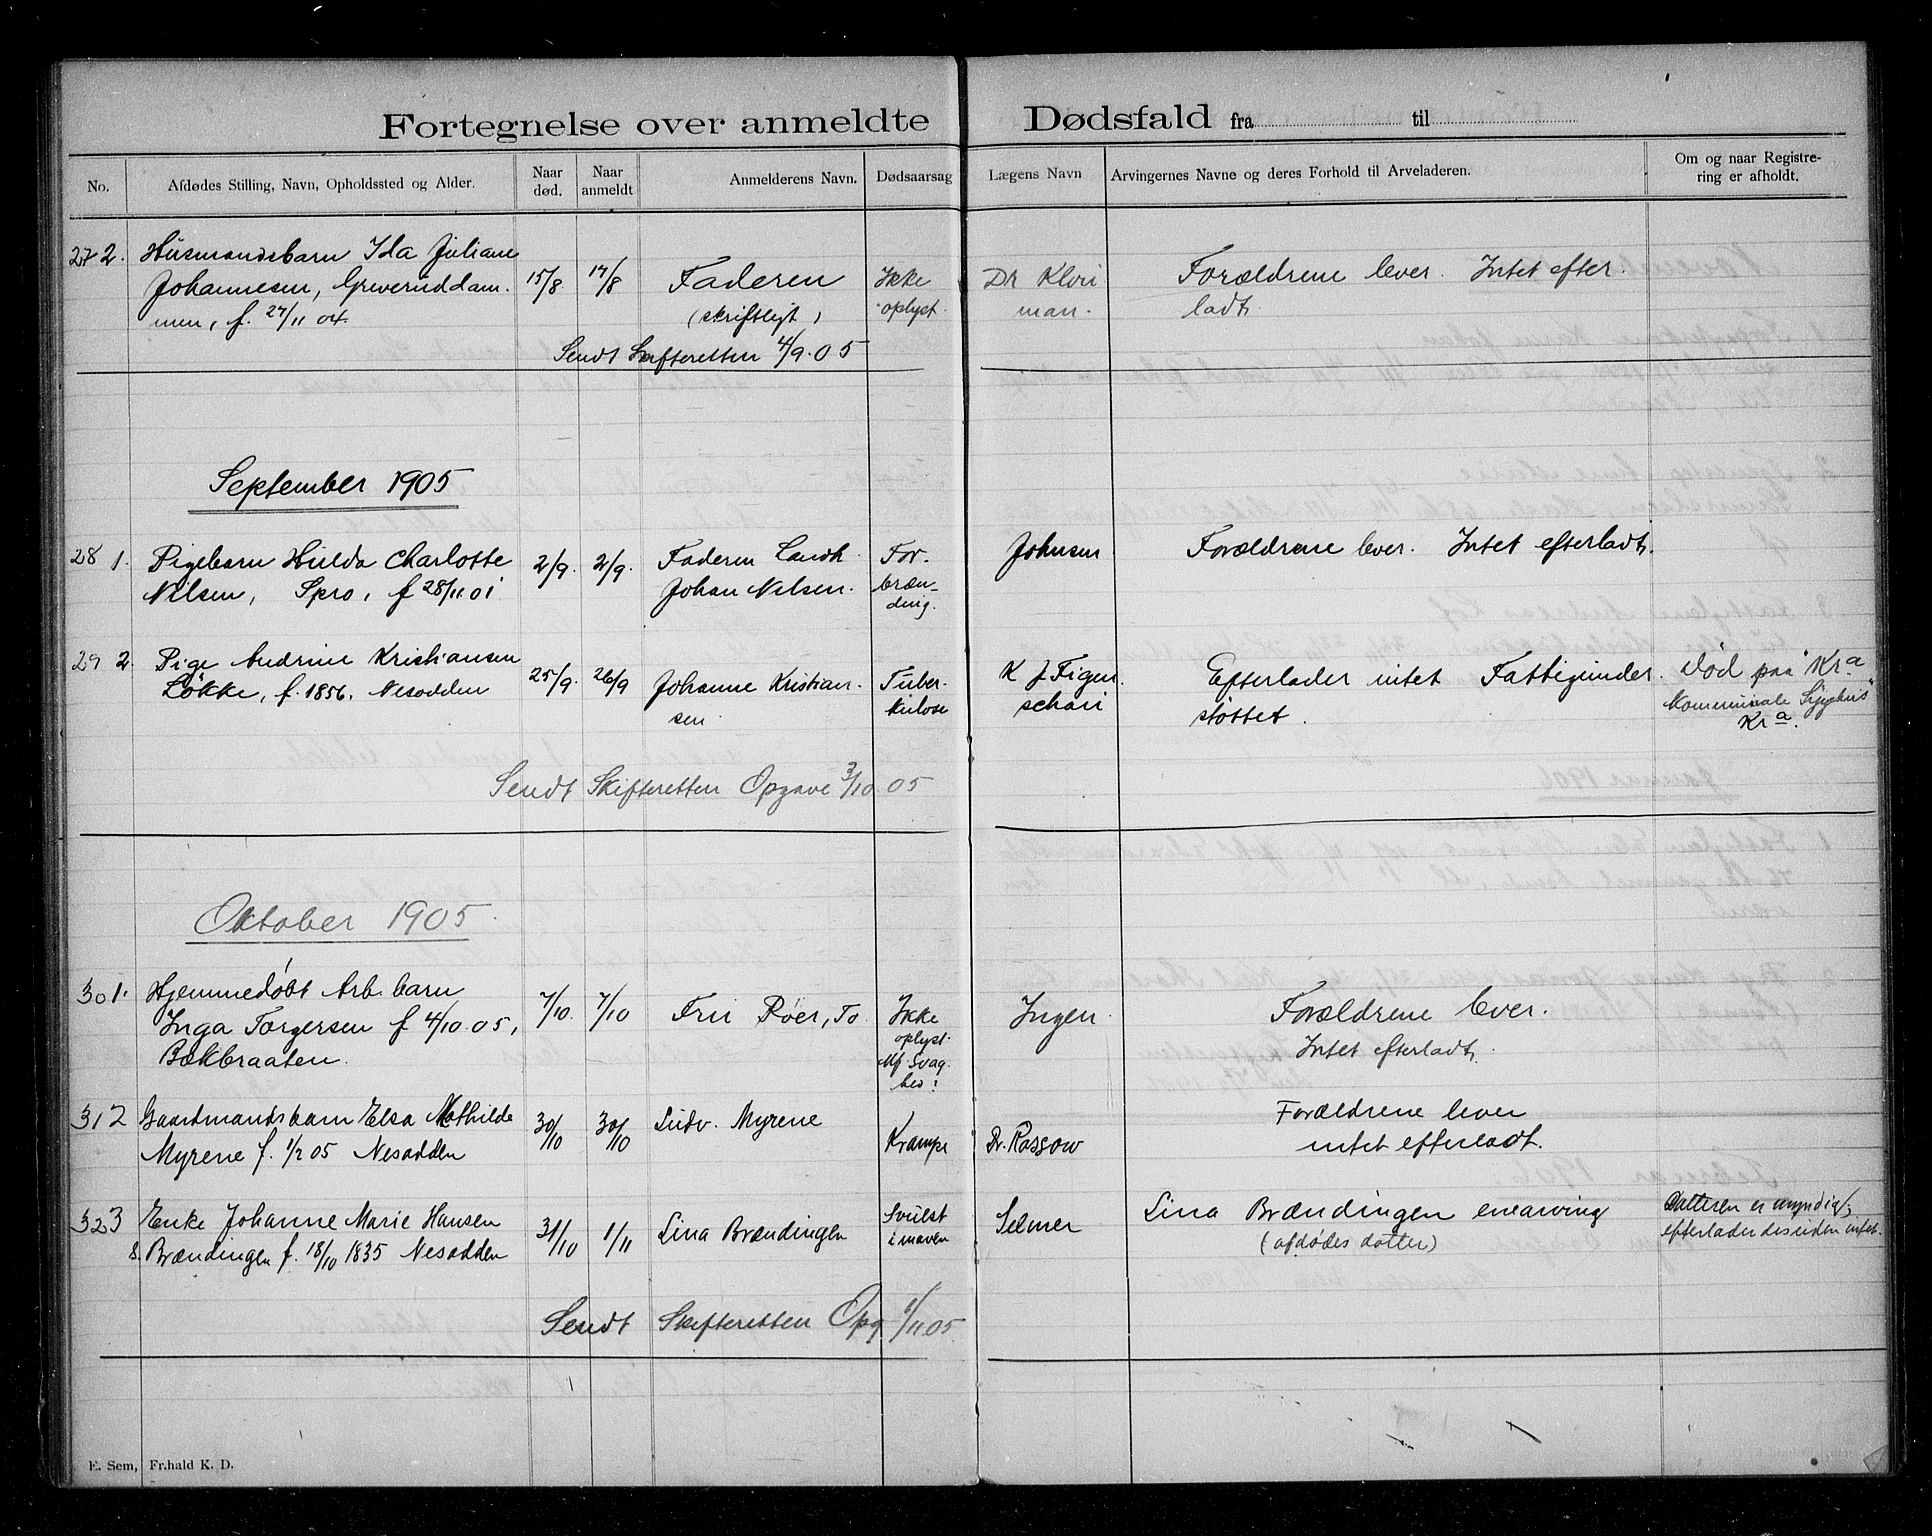 Fortegnelse over anmeldte Dødsfald fra til
No. Afdødes Stilling, Navn, Opholdssted og Alder. Naar død. Naar anmeldt Anmelderens Navn. Dødsaarsag Lægens Navn Arvingernes Navne og deres Forhold til Arveladeren. Om og naar Registrering er afholdt.
27 2. Husmandsbarn Ida Juliane
Johannesen, Greveruddam
men, f. 27/11 04. 15/8 17/8 Faderen
(skriftligt) Ikke
oplyst. Dr Klou
man. Forældrene lever. Intet efter
ladt.
Sendt Skifteretten 4/9.05
September 1905
28 1. Pigebarn Hulda Charlotte
Nilsen, Spro, f 28/11 01 2/9. 2/9. Faderen Landh.
Johan Nilsen. For-
bræn-
ding. Johnsen Forældrene lever. Intet efterladt.
29 2. Pige Andrine Kristiansen
Løkke, f. 1856, Nesodden 25/9. 26/9 Johanne Kristian
sen Tuber-
kulose K J Figen
schou Efterlader intet Fattigunder
støttet. Død paa "Kra
Kommunale Sygehus"
Kra.
Sendt Skifteretten Opgave 3/10 05
Oktober 1905.
30 1. Hjemmedøbt Arb. barn
Inga Torgersen f 4/10.05,
Bakbraaten. 7/10. 7/10 Fru Röer, To Ikke
oplyst.
Mf. Svag
hed? Ingen Forældrene lever.
Intet efterladt.
31 2 Gaardmandsbarn Elsa Mathilde
Myrene f. 1/2 05 Nesodden 30/10 30/10 Ludv. Myrene Krampe Dr. Rossow Forældrene lever
intet efterladt.
32 3 Enke Johanne Marie Hansen
Brændingen f. 18/10 1835 Nesodden 31/10 1/11 Lina Brændingen Svulst
i maven Selmer Lina Brændingen enearving
(afdødes datter) Datteren er myndig,
efterlader desuden intet.
Sendt Skifteretten Opg /11 05.
E. Sem, Fr.hald K. D.